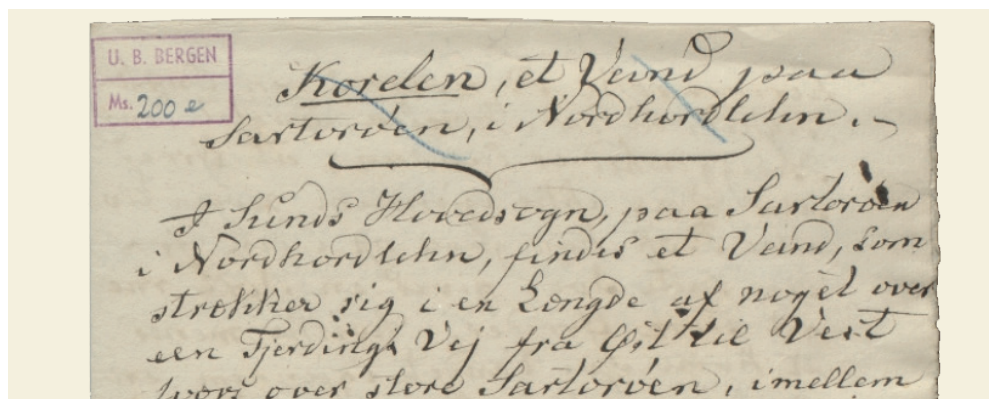 U. B. BERGEN
Ms. 200 e
Korelen, et Vand paa
Sartoröen, i Nordhordlehn.
I Sunds Hovedsogn, paa Sartoröen
i Nordhordlehn, findes et Vand, som
strekker sig i en Længde af noget over
een Fjerdings Vej fra Øst til Vest
tvers over store Sartoröen, imellem